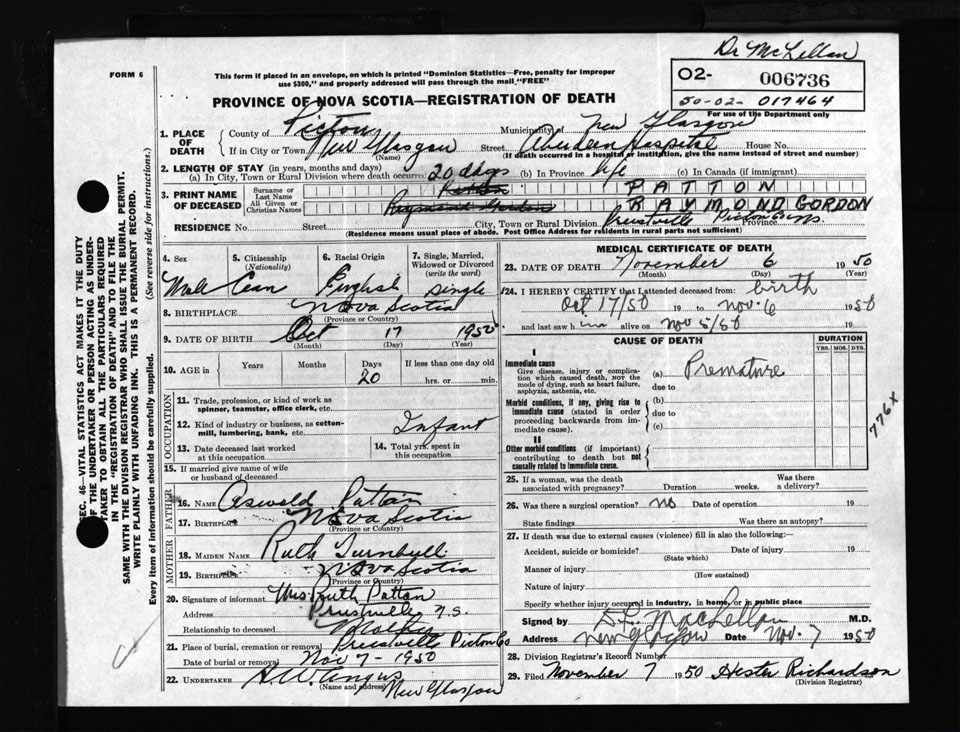 Dr McLellan
FORM 6
This form if placed in an envelope, on which is printed "Dominion Statistics—Free, penalty for improper
use $300," and properly addressed will pass through the mail "FREE"
02- 006736
50-02- 017464
For use of the Department only
PROVINCE OF NOVA SCOTIA—REGISTRATION OF DEATH
1. PLACE OF DEATH
County of Pictou Municipality of New Glasgow
If in City or Town New Glasgow (Name) Street Aberdeen Hospital House No.
(If death occurred in a hospital or institution, give the name instead of street and number)
2. LENGTH OF STAY (in years, months and days)
(a) In City, Town or Rural Division where death occurred 20 days (b) In Province life (c) In Canada (if immigrant)
3. PRINT NAME OF DECEASED
Surname or Last Name Patton PATTON
All Given or Christian Names Raymond Gordon RAYMOND GORDON
RESIDENCE No. Street City, Town or Rural Division Province Pictou Co
(Residence means usual place of abode. Post Office Address for residents in rural parts not sufficient)
4. Sex Male
5. Citizenship (Nationality) Can
6. Racial Origin English
7. Single, Married, Widowed or Divorced (write the word) single
8. BIRTHPLACE Nova Scotia
(Province or Country)
9. DATE OF BIRTH Oct 17 1950
(Month) (Day) (Year)
10. AGE in Years Months Days 20 If less than one day old hrs. or min.
OCCUPATION
11. Trade, profession, or kind of work as spinner, teamster, office clerk, etc.
12. Kind of industry or business, as cotton-mill, lumbering, bank, etc. Infant
13. Date deceased last worked at this occupation
14. Total yrs. spent in this occupation
15. If married give name of wife or husband of deceased
FATHER
16. NAME Oswald Patton
17. BIRTHPLACE Nova Scotia
(Province or Country)
MOTHER
18. MAIDEN NAME Ruth Turnbull
19. BIRTHPLACE Nova Scotia
(Province or Country)
20. Signature of informant Mrs Ruth Patton
Address N.S.
Relationship to deceased Mother
21. Place of burial, cremation or removal Pictou Co
Date of burial or removal Nov 7 - 1950
22. UNDERTAKER A.W. Angus
(Name and address) New Glasgow
MEDICAL CERTIFICATE OF DEATH
23. DATE OF DEATH November 6 1950
(Month) (Day) (Year)
24. I HEREBY CERTIFY that I attended deceased from: birth
Oct 17/50 19 to Nov. 6 1950
and last saw him alive on Nov 5/50 19
CAUSE OF DEATH
DURATION
YRS. MOS. DYS.
I
Immediate cause
Give disease, injury or complication which caused death, NOT the mode of dying, such as heart failure, asphyxia, asthenia, etc.
(a) Premature
due to
Morbid conditions, if any, giving rise to immediate cause (stated in order proceeding backwards from immediate cause).
(b)
due to
(c)
II
Other morbid conditions (if important) contributing to death but not causally related to immediate cause.
776 x
25. If a woman, was the death associated with pregnancy? Duration weeks. Was there a delivery?
26. Was there a surgical operation? no Date of operation 19
State findings Was there an autopsy?
27. If death was due to external causes (violence) fill in also the following:—
Accident, suicide or homicide? Date of injury 19
(State which)
Manner of injury
(How sustained)
Nature of injury
Specify whether injury occurred in industry, in home, or in public place
Signed by MacLellan M.D.
Address New Glasgow Date Nov. 7 1950
28. Division Registrar's Record Number
29. Filed November 7 1950 Hester Richardson
(Division Registrar)
SEC. 46—VITAL STATISTICS ACT MAKES IT THE DUTY
OF THE UNDERTAKER OR PERSON ACTING AS UNDERTAKER TO OBTAIN ALL THE PARTICULARS REQUIRED
IN THE "REGISTRATION OF DEATH" AND TO FILE THE
SAME WITH THE DIVISION REGISTRAR WHO SHALL ISSUE THE BURIAL PERMIT.
WRITE PLAINLY WITH UNFADING INK. THIS IS A PERMANENT RECORD.
Every item of information should be carefully supplied. (See reverse side for instructions.)